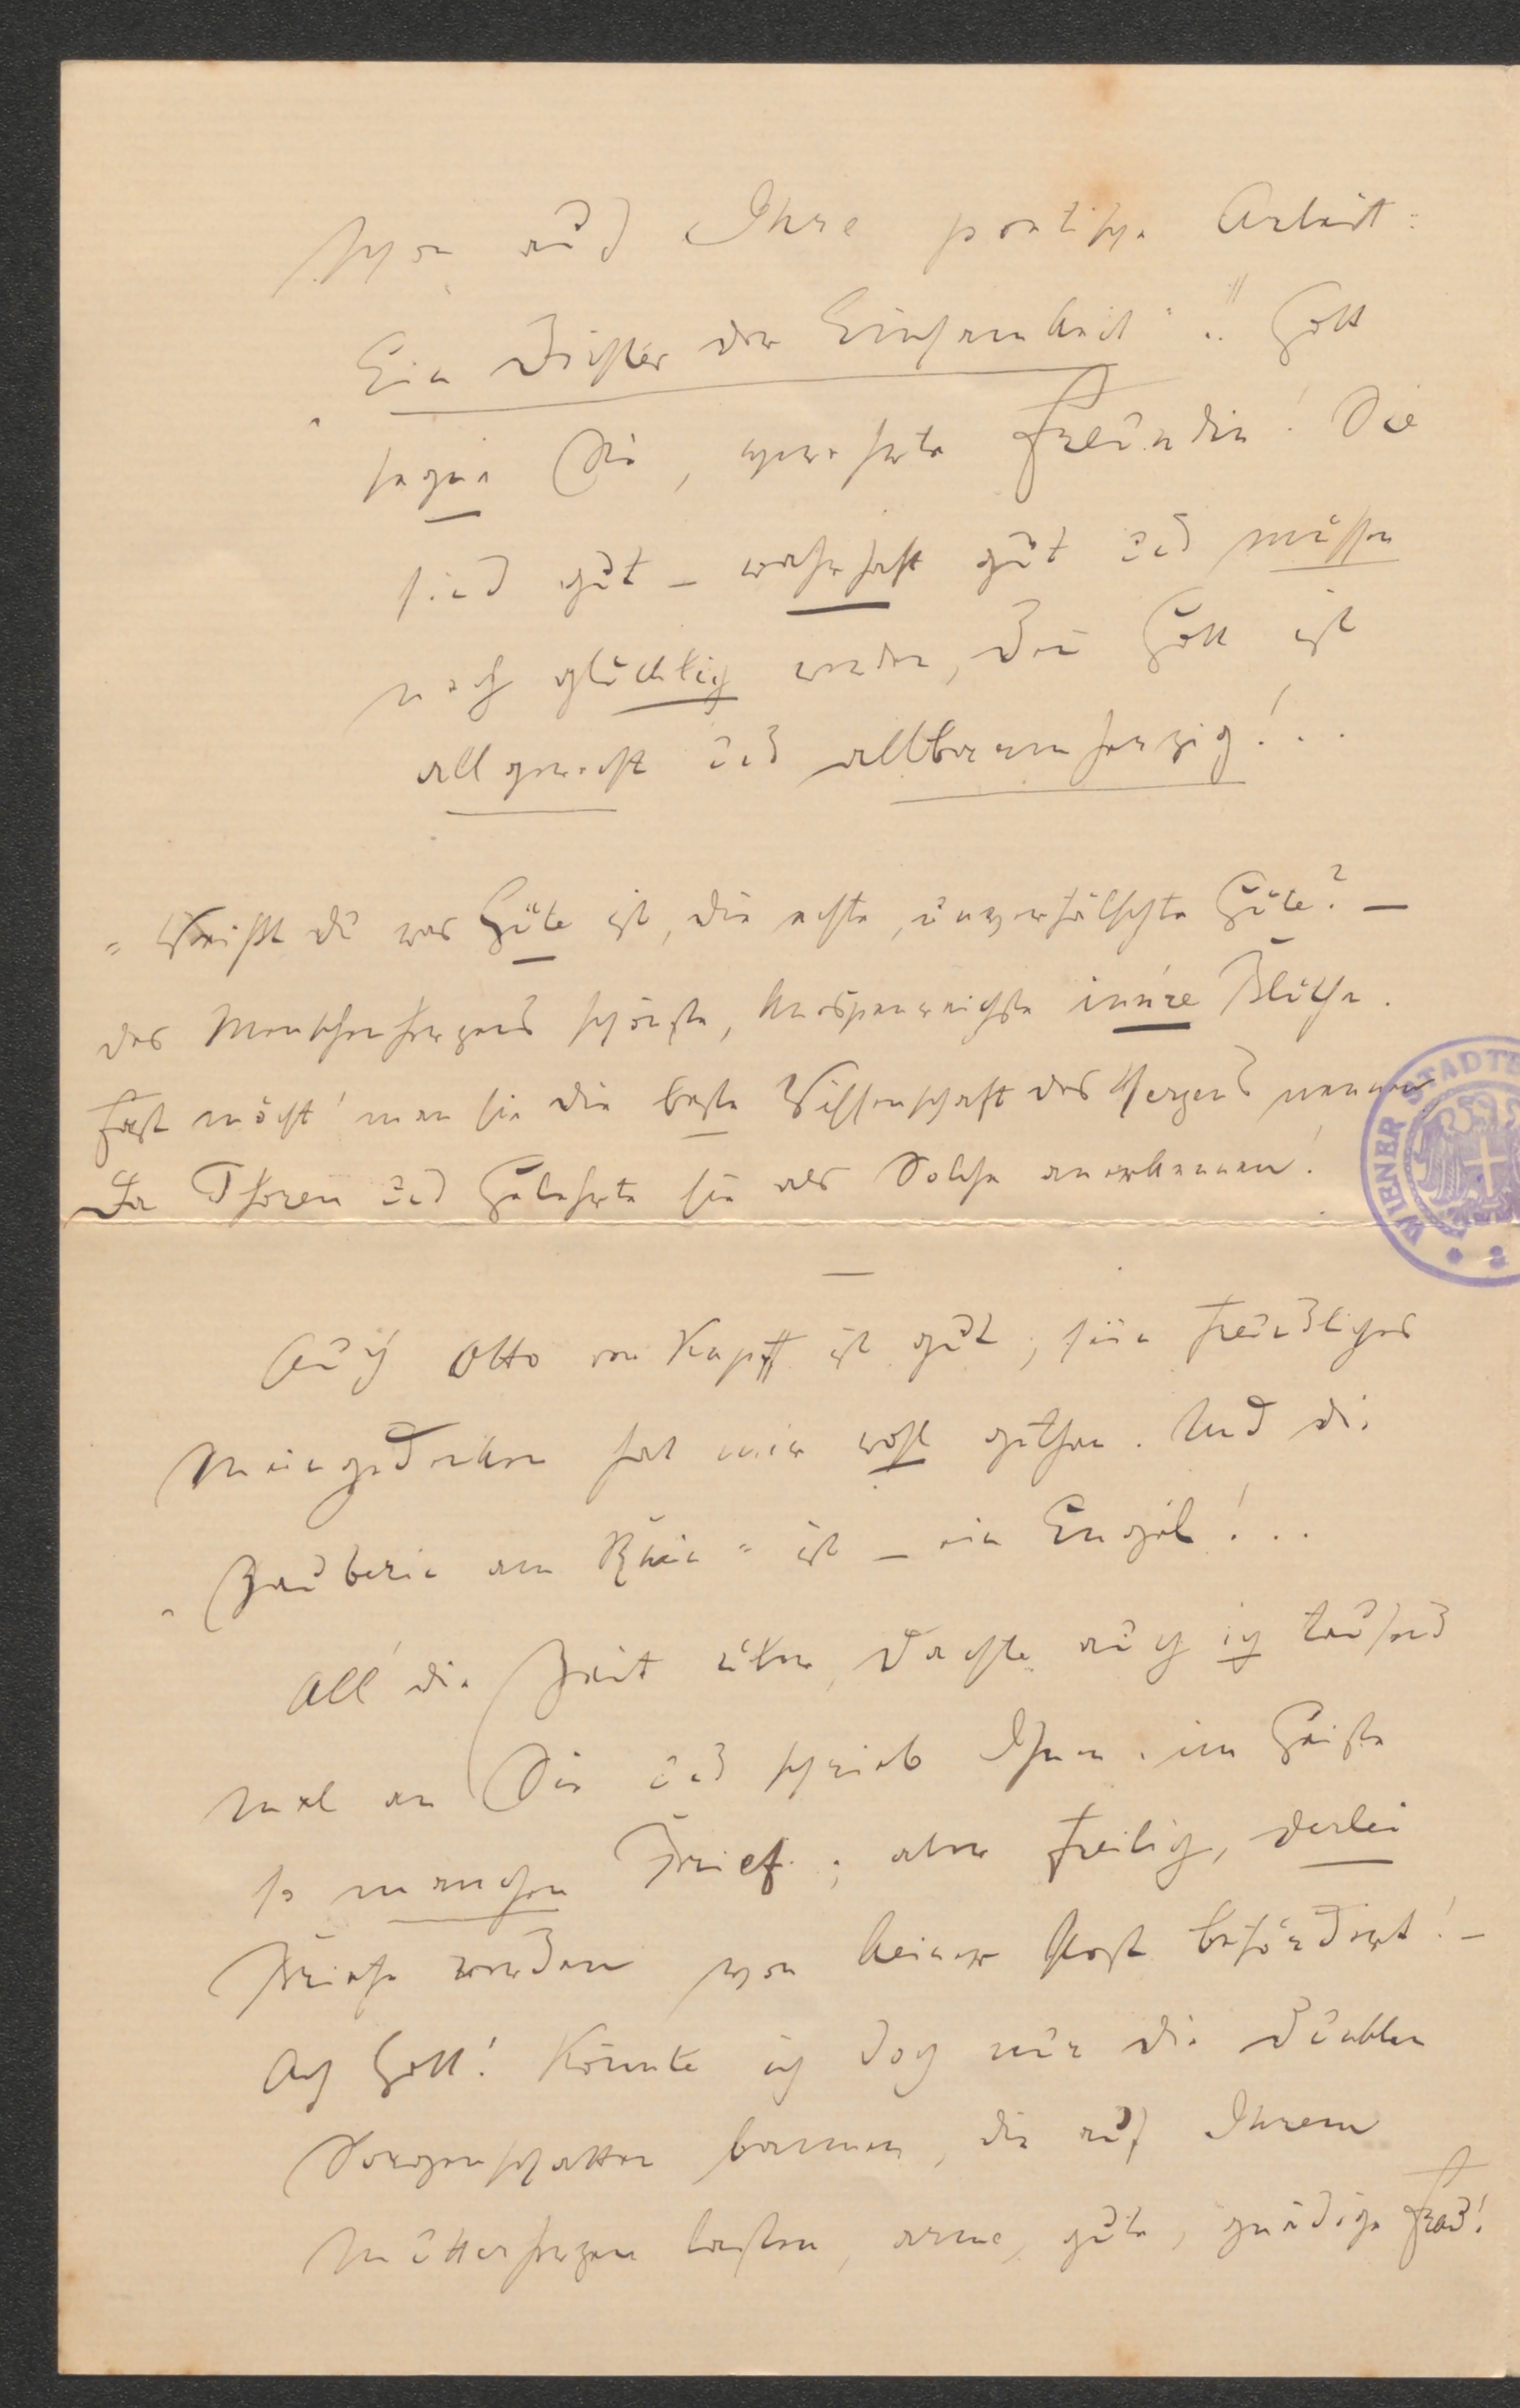 schon auf Ihre poetische Arbeit:
„Ein Dichter der Einsamkeit"!! Gott
segne Sie, verehrte Freundin! Sie
sind gut – wahrhaft gut und müssen
noch glücklich werden, denn Gott ist
allgerecht und allbarmherzig!..
„Weißt du was Güte ist, die echte, unverfälschte Güte? –
Des Menschenherzens schönste, knospenreichste inn're Blüthe.
Fast möcht' man sie die beste Wissenschaft des Herzens nennen
Da Thoren und Gelehrte sie als Solche anerkennen!
—
Auch Otto von Kapff ist gut; sein freundliches
Meingedenken hat mir wohl gethan. Und die
„Zauberin am Rhein" ist – ein Engel!..
All' die Zeit über dachte auch ich tausend
mal an Sie und schrieb Ihnen im Geiste
so manchen Brief; aber freilich, derlei
Briefe werden von keiner Post befördert! –
Ach Gott! Könnte ich doch nur die dunklen
Sorgenschatten bannen, die auf Ihrem
Mutterherzen lasten, arme, gute, gnädige Frau!
WIENER STADTB